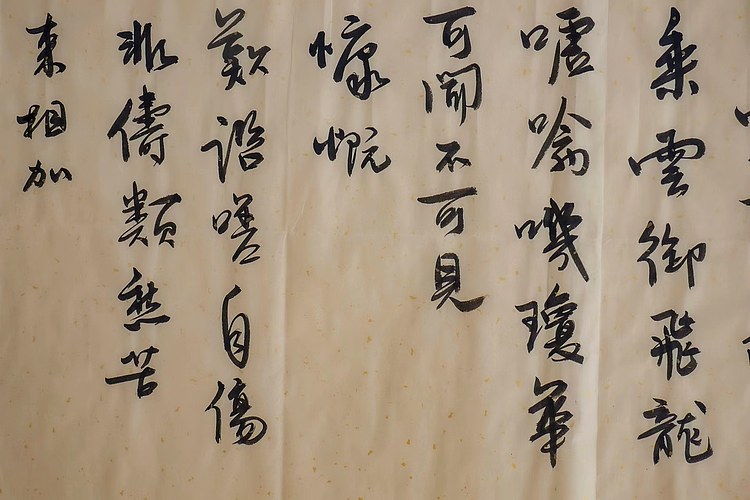 乘雲御飛龍
噓噏嘰瓊華
可聞不可見
慷慨
歎諮嗟自傷
非儔類愁苦
來相加